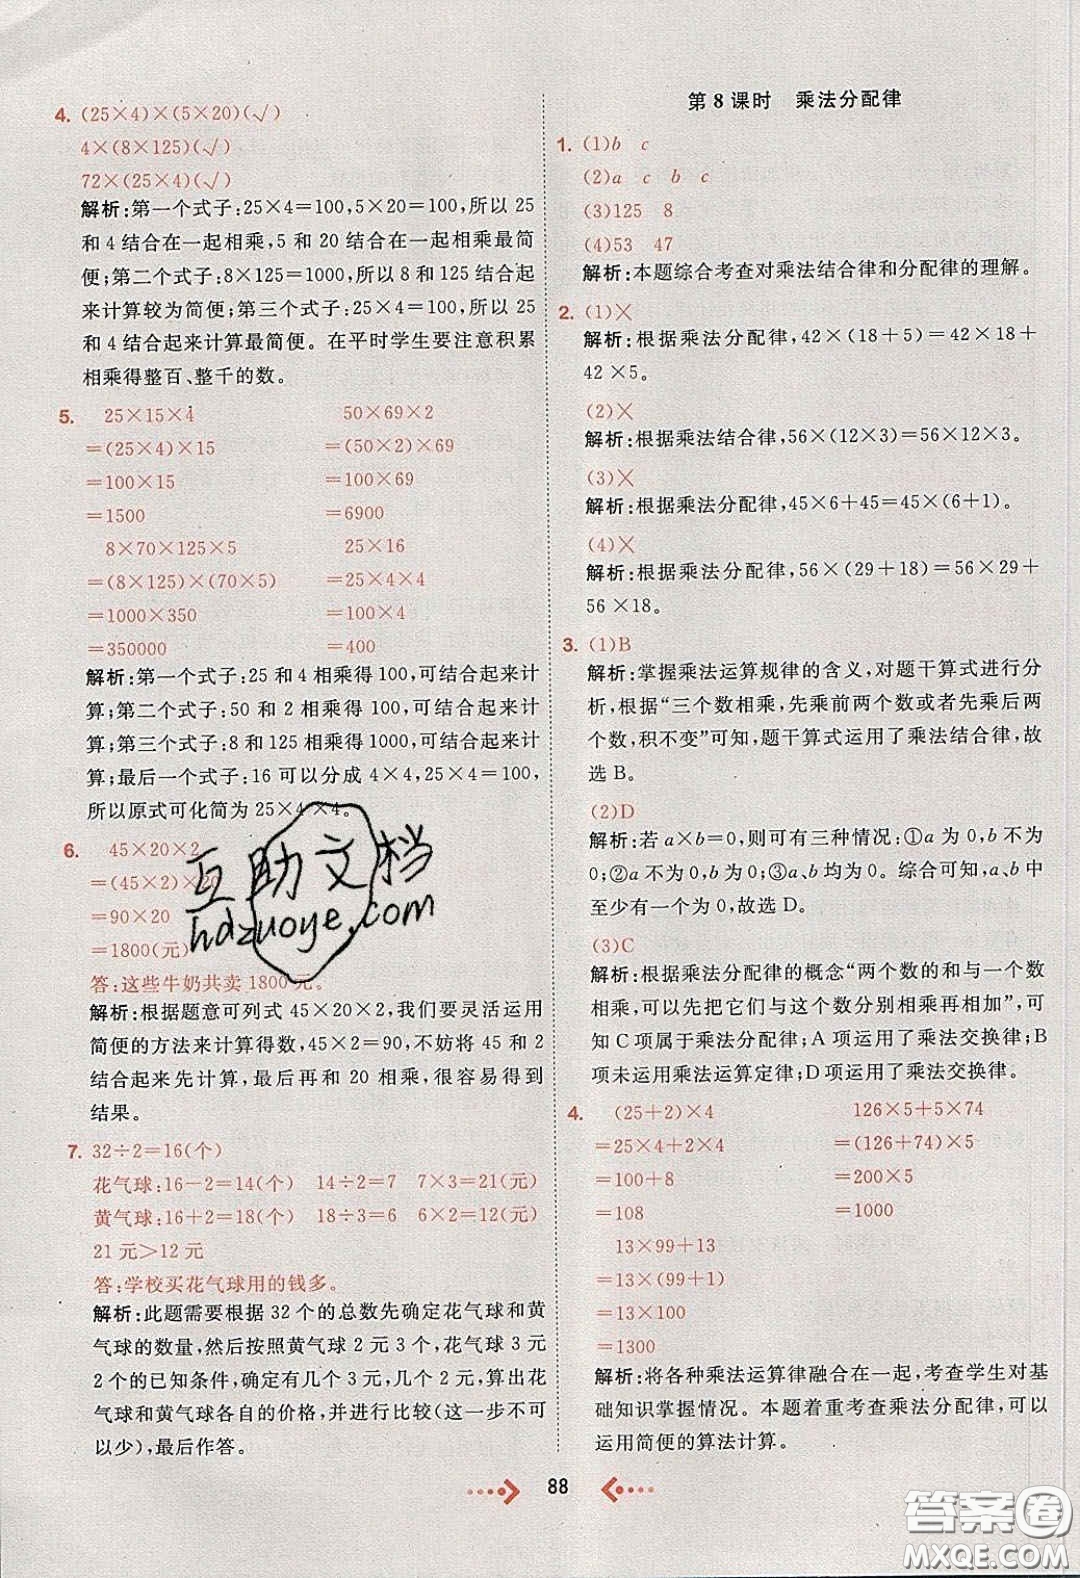 4. (25×4)×(5×20)(√)
4×(8×125)(√)
72×(25×4)(√)
解析:第一个式子:25×4=100,5×20=100,所以 25
和 4 结合在一起相乘,5 和 20 结合在一起相乘最简
便;第二个式子:8×125=1000,所以 8 和 125 结合起
来计算较为简便;第三个式子:25×4=100,所以 25
和 4 结合起来计算最简便。在平时学生要注意积累
相乘得整百、整千的数。
5. 25×15×4 50×69×2
=(25×4)×15 =(50×2)×69
=100×15 =100×69
=1500 =6900
8×70×125×5 25×16
=(8×125)×(70×5) =25×4×4
=1000×350 =100×4
=350000 =400
解析:第一个式子:25 和 4 相乘得 100,可结合起来计
算;第二个式子:50 和 2 相乘得 100,可结合起来计
算;第三个式子:8 和 125 相乘得 1000,可结合起来计
算;最后一个式子:16 可以分成 4×4,25×4=100,
所以原式可化简为 25×4×4。
6. 45×20×2
=(45×2)×20
=90×20
=1800(元)
答:这些牛奶共卖 1800 元。
解析:根据题意可列式 45×20×2,我们要灵活运用
简便的方法来计算得数,45×2=90,不妨将 45 和 2
结合起来先计算,最后再和 20 相乘,很容易得到
结果。
7. 32÷2=16(个)
花气球:16-2=14(个) 14÷2=7 7×3=21(元)
黄气球:16+2=18(个) 18÷3=6 6×2=12(元)
21 元>12 元
答:学校买花气球用的钱多。
解析:此题需要根据 32 个的总数先确定花气球和黄
气球的数量,然后按照黄气球 2 元 3 个,花气球 3 元
2 个的已知条件,确定有几个 3 元,几个 2 元,算出花
气球和黄气球各自的价格,并进行比较(这一步不可
以少),最后作答。
第 8 课时 乘法分配律
1. (1)b c
(2)a c b c
(3)125 8
(4)53 47
解析:本题综合考查对乘法结合律和分配律的理解。
2. (1)×
解析:根据乘法分配律,42×(18+5)=42×18+
42×5。
(2)×
解析:根据乘法结合律,56×(12×3)=56×12×3。
(3)×
解析:根据乘法分配律,45×6+45=45×(6+1)。
(4)×
解析:根据乘法分配律,56×(29+18)=56×29+
56×18。
3. (1)B
解析:掌握乘法运算规律的含义,对题干算式进行分
析,根据“三个数相乘,先乘前两个数或者先乘后两
个数,积不变”可知,题干算式运用了乘法结合律,故
选 B。
(2)D
解析:若 a×b=0,则可有三种情况:①a 为 0,b 不为
0;②a 不为 0,b 为 0;③a、b 均为 0。综合可知,a、b 中
至少有一个为 0,故选 D。
(3)C
解析:根据乘法分配律的概念“两个数的和与一个数
相乘,可以先把它们与这个数分别相乘再相加”,可
知 C 项属于乘法分配律;A 项运用了乘法交换律;B
项未运用乘法运算定律;D 项运用了乘法交换律。
4. (25+2)×4 126×5+5×74
=25×4+2×4 =(126+74)×5
=100+8 =200×5
=108 =1000
13×99+13
=13×(99+1)
=13×100
=1300
解析:将各种乘法运算律融合在一起,考查学生对基
础知识掌握情况。本题着重考查乘法分配律,可以
运用简便的算法计算。
88
互助文档
hdzuoye.com
答案圈
MXQE.COM